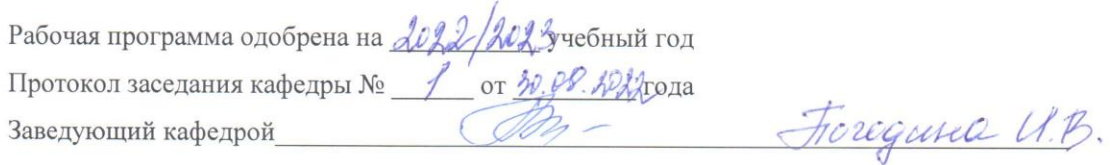 Рабочая программа одобрена на 2022/2023 учебный год
Протокол заседания кафедры № 1 от 30.08.2022 года
Заведующий кафедрой Погодина И.В.